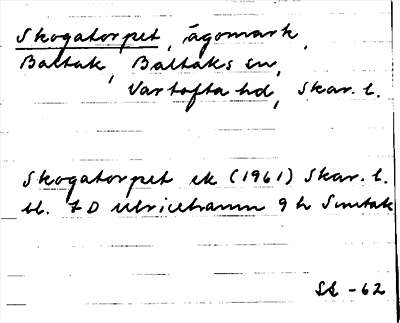 Skogatorpet, ägomark,
Baltak, Baltaks sn,
Vartofta hd, Skar. l.
Skogatorpet ek (1961) Skar. l.
bl. 7 D Ulricehamn 9 h Smetak
SL -62